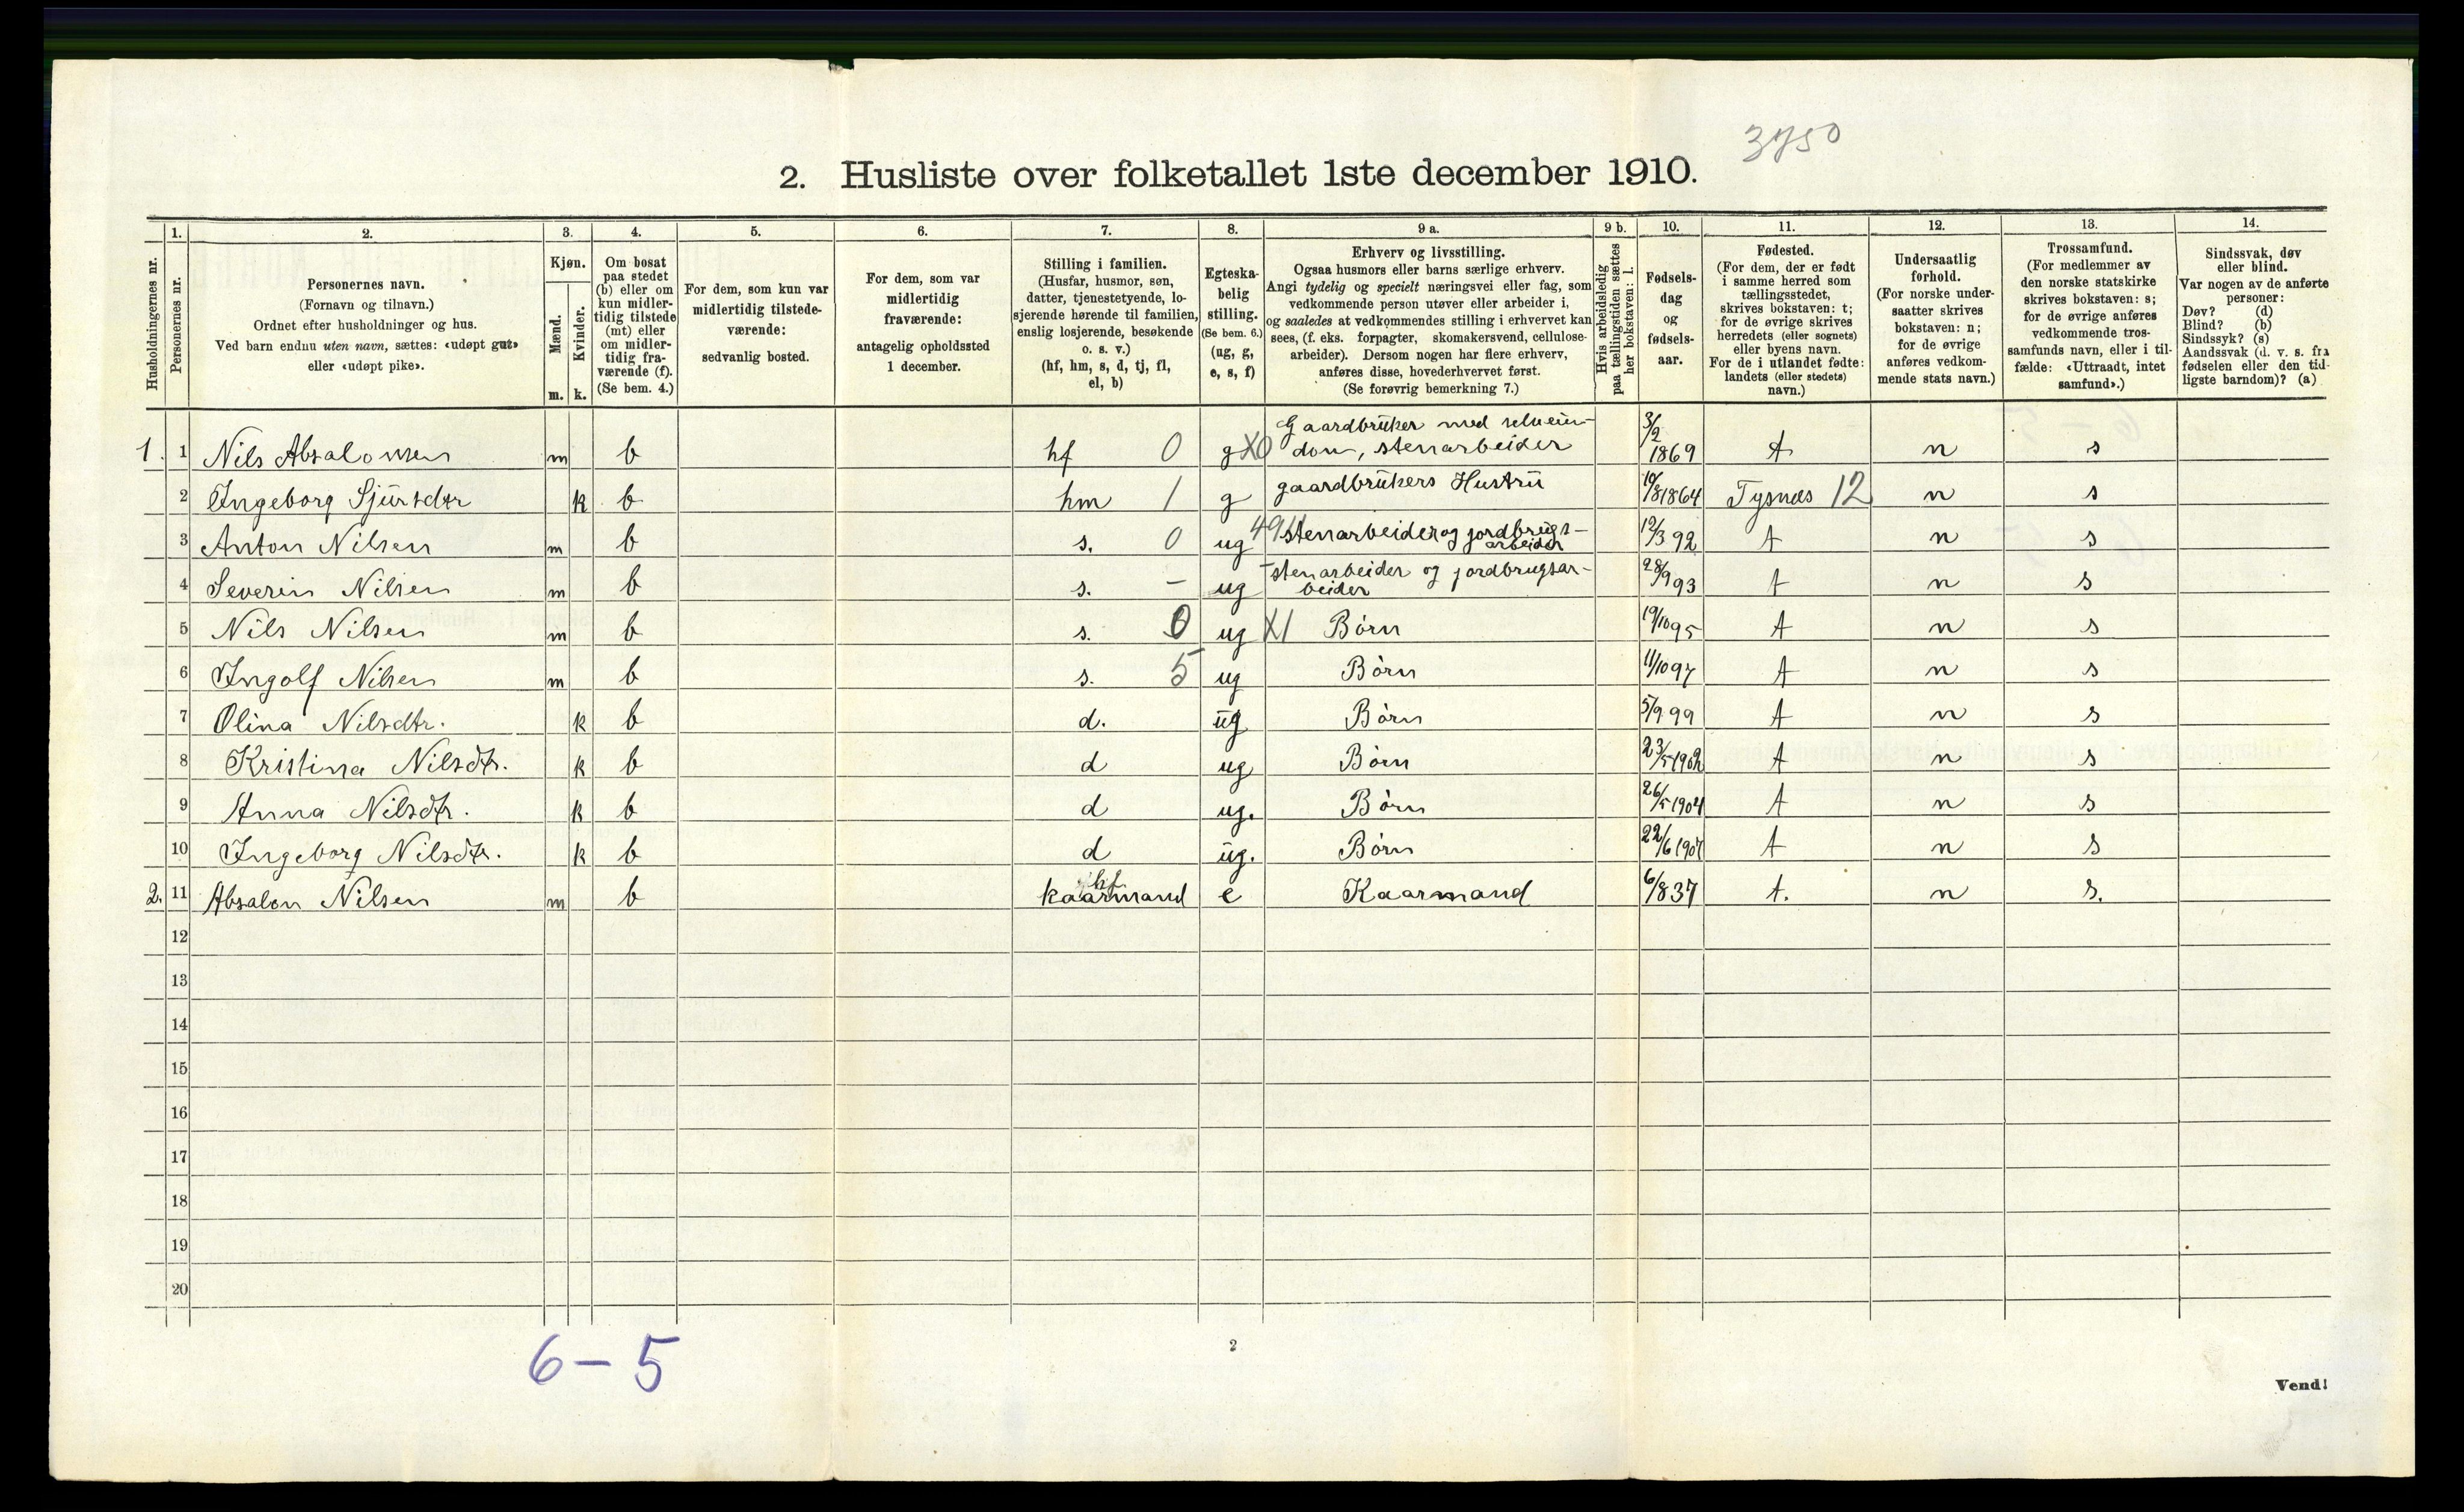 3750
2. Husliste over folketallet 1ste december 1910.
Husholdningernes nr.
1.
Personernes nr.
2.
Personernes navn.
(Fornavn og tilnavn.)
Ordnet efter husholdninger og hus.
Ved barn endnu uten navn, sættes: «udøpt gut»
eller «udøpt pike».
3.
Kjøn.
Mænd.
Kvinder.
m. k.
4.
Om bosat
paa stedet
(b) eller om
kun midler-
tidig tilstede
(mt) eller
om midler-
tidig fra-
værende (f).
(Se bem. 4.)
5.
For dem, som kun var
midlertidig tilstede-
værende:
sedvanlig bosted.
6.
For dem, som var
midlertidig
fraværende:
antagelig opholdssted
1 december.
7.
Stilling i familien.
(Husfar, husmor, søn,
datter, tjenestetyende, lo-
sjerende hørende til familien,
enslig losjerende, besøkende
o. s. v.)
(hf, hm, s, d, tj, fl,
el, b)
8.
Egteska-
belig
stilling.
(Se bem. 6.)
(ug, g,
e, s, f)
9 a.
Erhverv og livsstilling.
Ogsaa husmors eller barns særlige erhverv.
Angi tydelig og specielt næringsvei eller fag, som
vedkommende person utøver eller arbeider i,
og saaledes at vedkommendes stilling i erhvervet kan
sees, (f. eks. forpagter, skomakersvend, cellulose-
arbeider). Dersom nogen har flere erhverv,
anføres disse, hovederhvervet først.
(Se forøvrig bemerkning 7.)
9 b.
Hvis arbeidsledig
paa tællingstiden sættes
her bokstaven: l.
10.
Fødsels-
dag
og
fødsels-
aar.
11.
Fødested.
(For dem, der er født
i samme herred som
tællingsstedet,
skrives bokstaven: t;
for de øvrige skrives
herredets (eller sognets)
eller byens navn.
For de i utlandet fødte:
landets (eller stedets)
navn.)
12.
Undersaatlig
forhold.
(For norske under-
saatter skrives
bokstaven: n;
for de øvrige
anføres vedkom-
mende stats navn.)
13.
Trossamfund.
(For medlemmer av
den norske statskirke
skrives bokstaven: s;
for de øvrige anføres
vedkommende tros-
samfunds navn, eller i til-
fælde: «Uttraadt, intet
samfund».)
14.
Sindssvak, døv
eller blind.
Var nogen av de anførte
personer:
Døv? (d)
Blind? (b)
Sindssyk? (s)
Aandssvak (d. v. s. fra
fødselen eller den tid-
ligste barndom)? (a)
1. 1 Nils Absalomsen m b hf 0 g X0 Gaardbruker med selveien-
dom, stenarbeider 3/2 1869 t n s
2 Ingeborg Sjursdtr k b hm 1 g gaardbrukers Hustru 19/8 1864 Tysnæs 12 n s
3 Anton Nilsen m b s. 0 ug stenarbeider og jordbrugs-
arbeider 12/3 92 t n s
4 Severin Nilsen m b s. - ug stenarbeider og jordbrugsar-
beider 28/9 93 t n s
5 Nils Nilsen m b s. 0 ug X1 Børn 19/10 95 t n s
6 Ingolf Nilsen m b s. 5 ug Børn 11/10 97 t n s
7 Olina Nilsdtr. k b d. ug Børn 5/9 99 t n s
8 Kristina Nilsdtr. k b d ug Børn 23/5 1902 t n s
9 Anna Nilsdtr. k b d ug. Børn 26/5 1904 t n s
10 Ingeborg Nilsdtr. k b d ug. Børn 22/6 1907 t n s
2. 11 Absalon Nilsen m b hf kaarmand e Kaarmand 6/8 37 t. n s.
12
13
14
15
16
17
18
19
20
6-5
2
Vend!